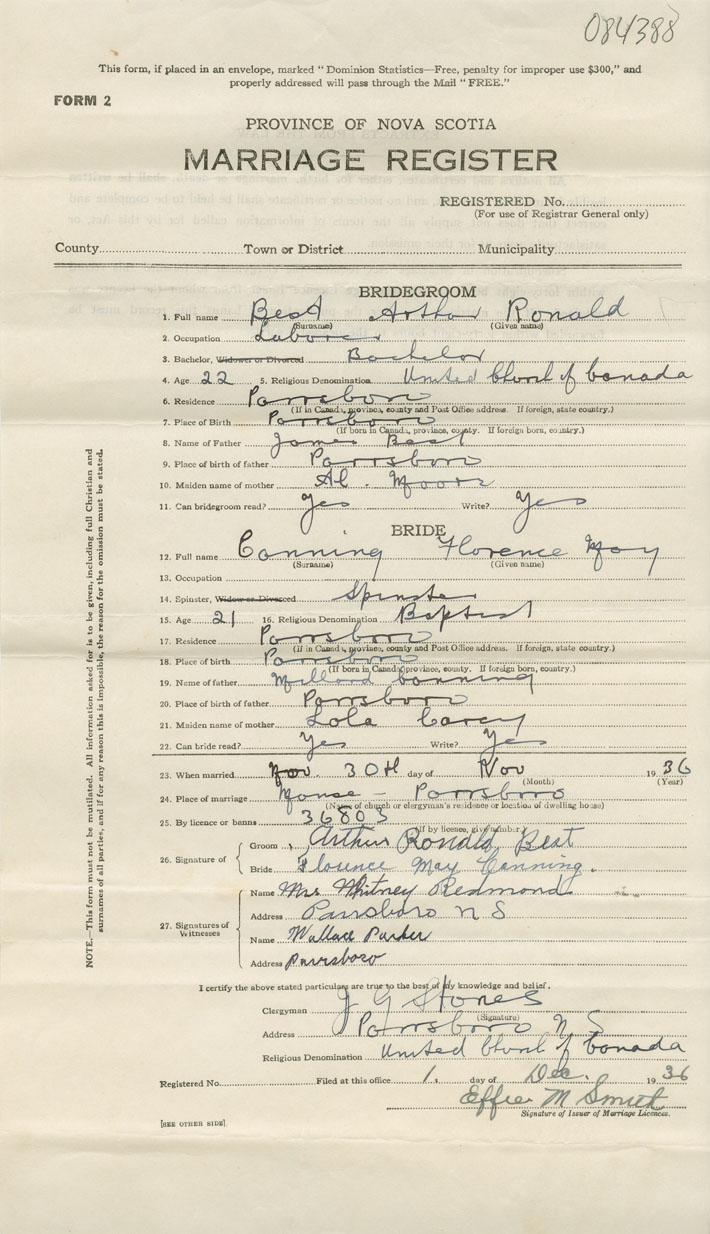 084388
This form, if placed in an envelope, marked "Dominion Statistics—Free, penalty for improper use $300," and
properly addressed will pass through the Mail "FREE."
FORM 2
PROVINCE OF NOVA SCOTIA
MARRIAGE REGISTER
REGISTERED No.
(For use of Registrar General only)
County Town or District Municipality
BRIDEGROOM
1. Full name Best Arthur Ronald
(Surname) (Given name)
2. Occupation Laborer
3. Bachelor, Widower or Divorced Bachelor
4. Age 22 5. Religious Denomination United Church of Canada
6. Residence Parrsboro
(If in Canada, province, county and Post Office address. If foreign, state country.)
7. Place of Birth Parrsboro
(If born in Canada, province, county. If foreign born, country.)
8. Name of Father James Best
9. Place of birth of father Parrsboro
10. Maiden name of mother Al. Moore
11. Can bridegroom read? Yes Write? Yes
BRIDE
12. Full name Canning Florence May
(Surname) (Given name)
13. Occupation
14. Spinster, Widow or Divorced Spinster
15. Age 21 16. Religious Denomination Baptist
17. Residence Parrsboro
(If in Canada, province, county and Post Office address. If foreign, state country.)
18. Place of birth Parrsboro
(If born in Canada, province, county. If foreign born, country.)
19. Name of father Millard Canning
20. Place of birth of father Parrsboro
21. Maiden name of mother Lola Carey
22. Can bride read? Yes Write? Yes
23. When married Nov. 30th day of Nov 1936
(Month) (Year)
24. Place of marriage Manse - Parrsboro
(Name of church or clergyman's residence or location of dwelling house)
25. By licence or banns 36803
(If by licence, give number)
26. Signature of
Groom Arthur Ronald Best
Bride Florence May Canning.
27. Signatures of Witnesses
Name Mrs Whitney Redmond
Address Parrsboro N S
Name Wallace Parker
Address Parrsboro
I certify the above stated particulars are true to the best of my knowledge and belief.
Clergyman J G Stones
(Signature)
Address Parrsboro N S
Religious Denomination United Church of Canada
Registered No. Filed at this office 1. day of Dec. 1936
Effie M Smith
Signature of Issuer of Marriage Licences.
[SEE OTHER SIDE]
NOTE.—This form must not be mutilated. All information asked for is to be given, including full Christian and
surnames of all parties, and if for any reason this is impossible, the reason for the omission must be stated.